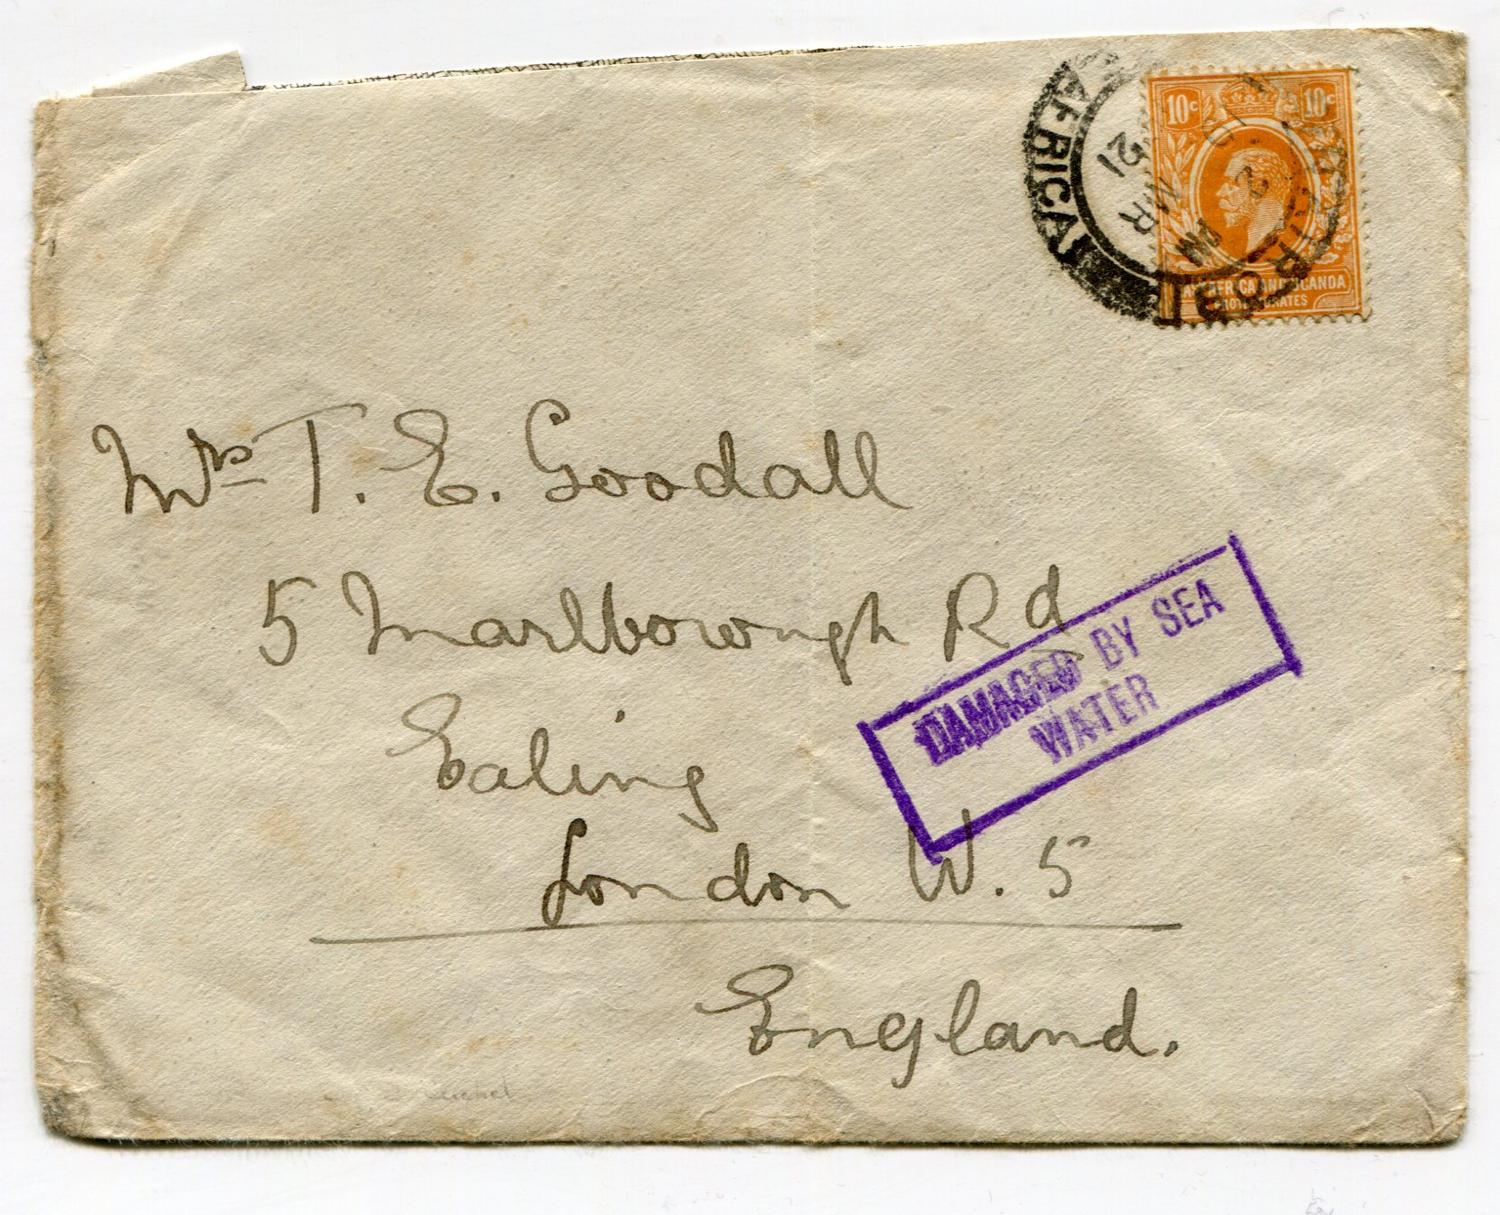 10c 10c
EAST AFRICA AND UGANDA
PROTECTORATES
NAIROBI
AFRICA
PM
2
MR
21
Mrs T. E. Goodall
5 Marlborough Rd
Ealing
London W. 5
England.
DAMAGED BY SEA
WATER